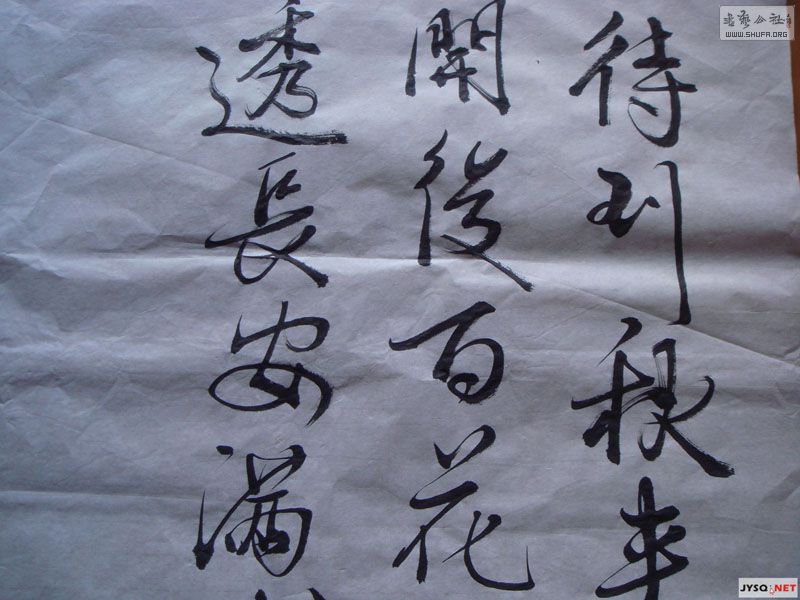 待到秋来
開後百花
透長安滿
書藝公社
WWW.SHUFA.ORG
JYSQ.NET